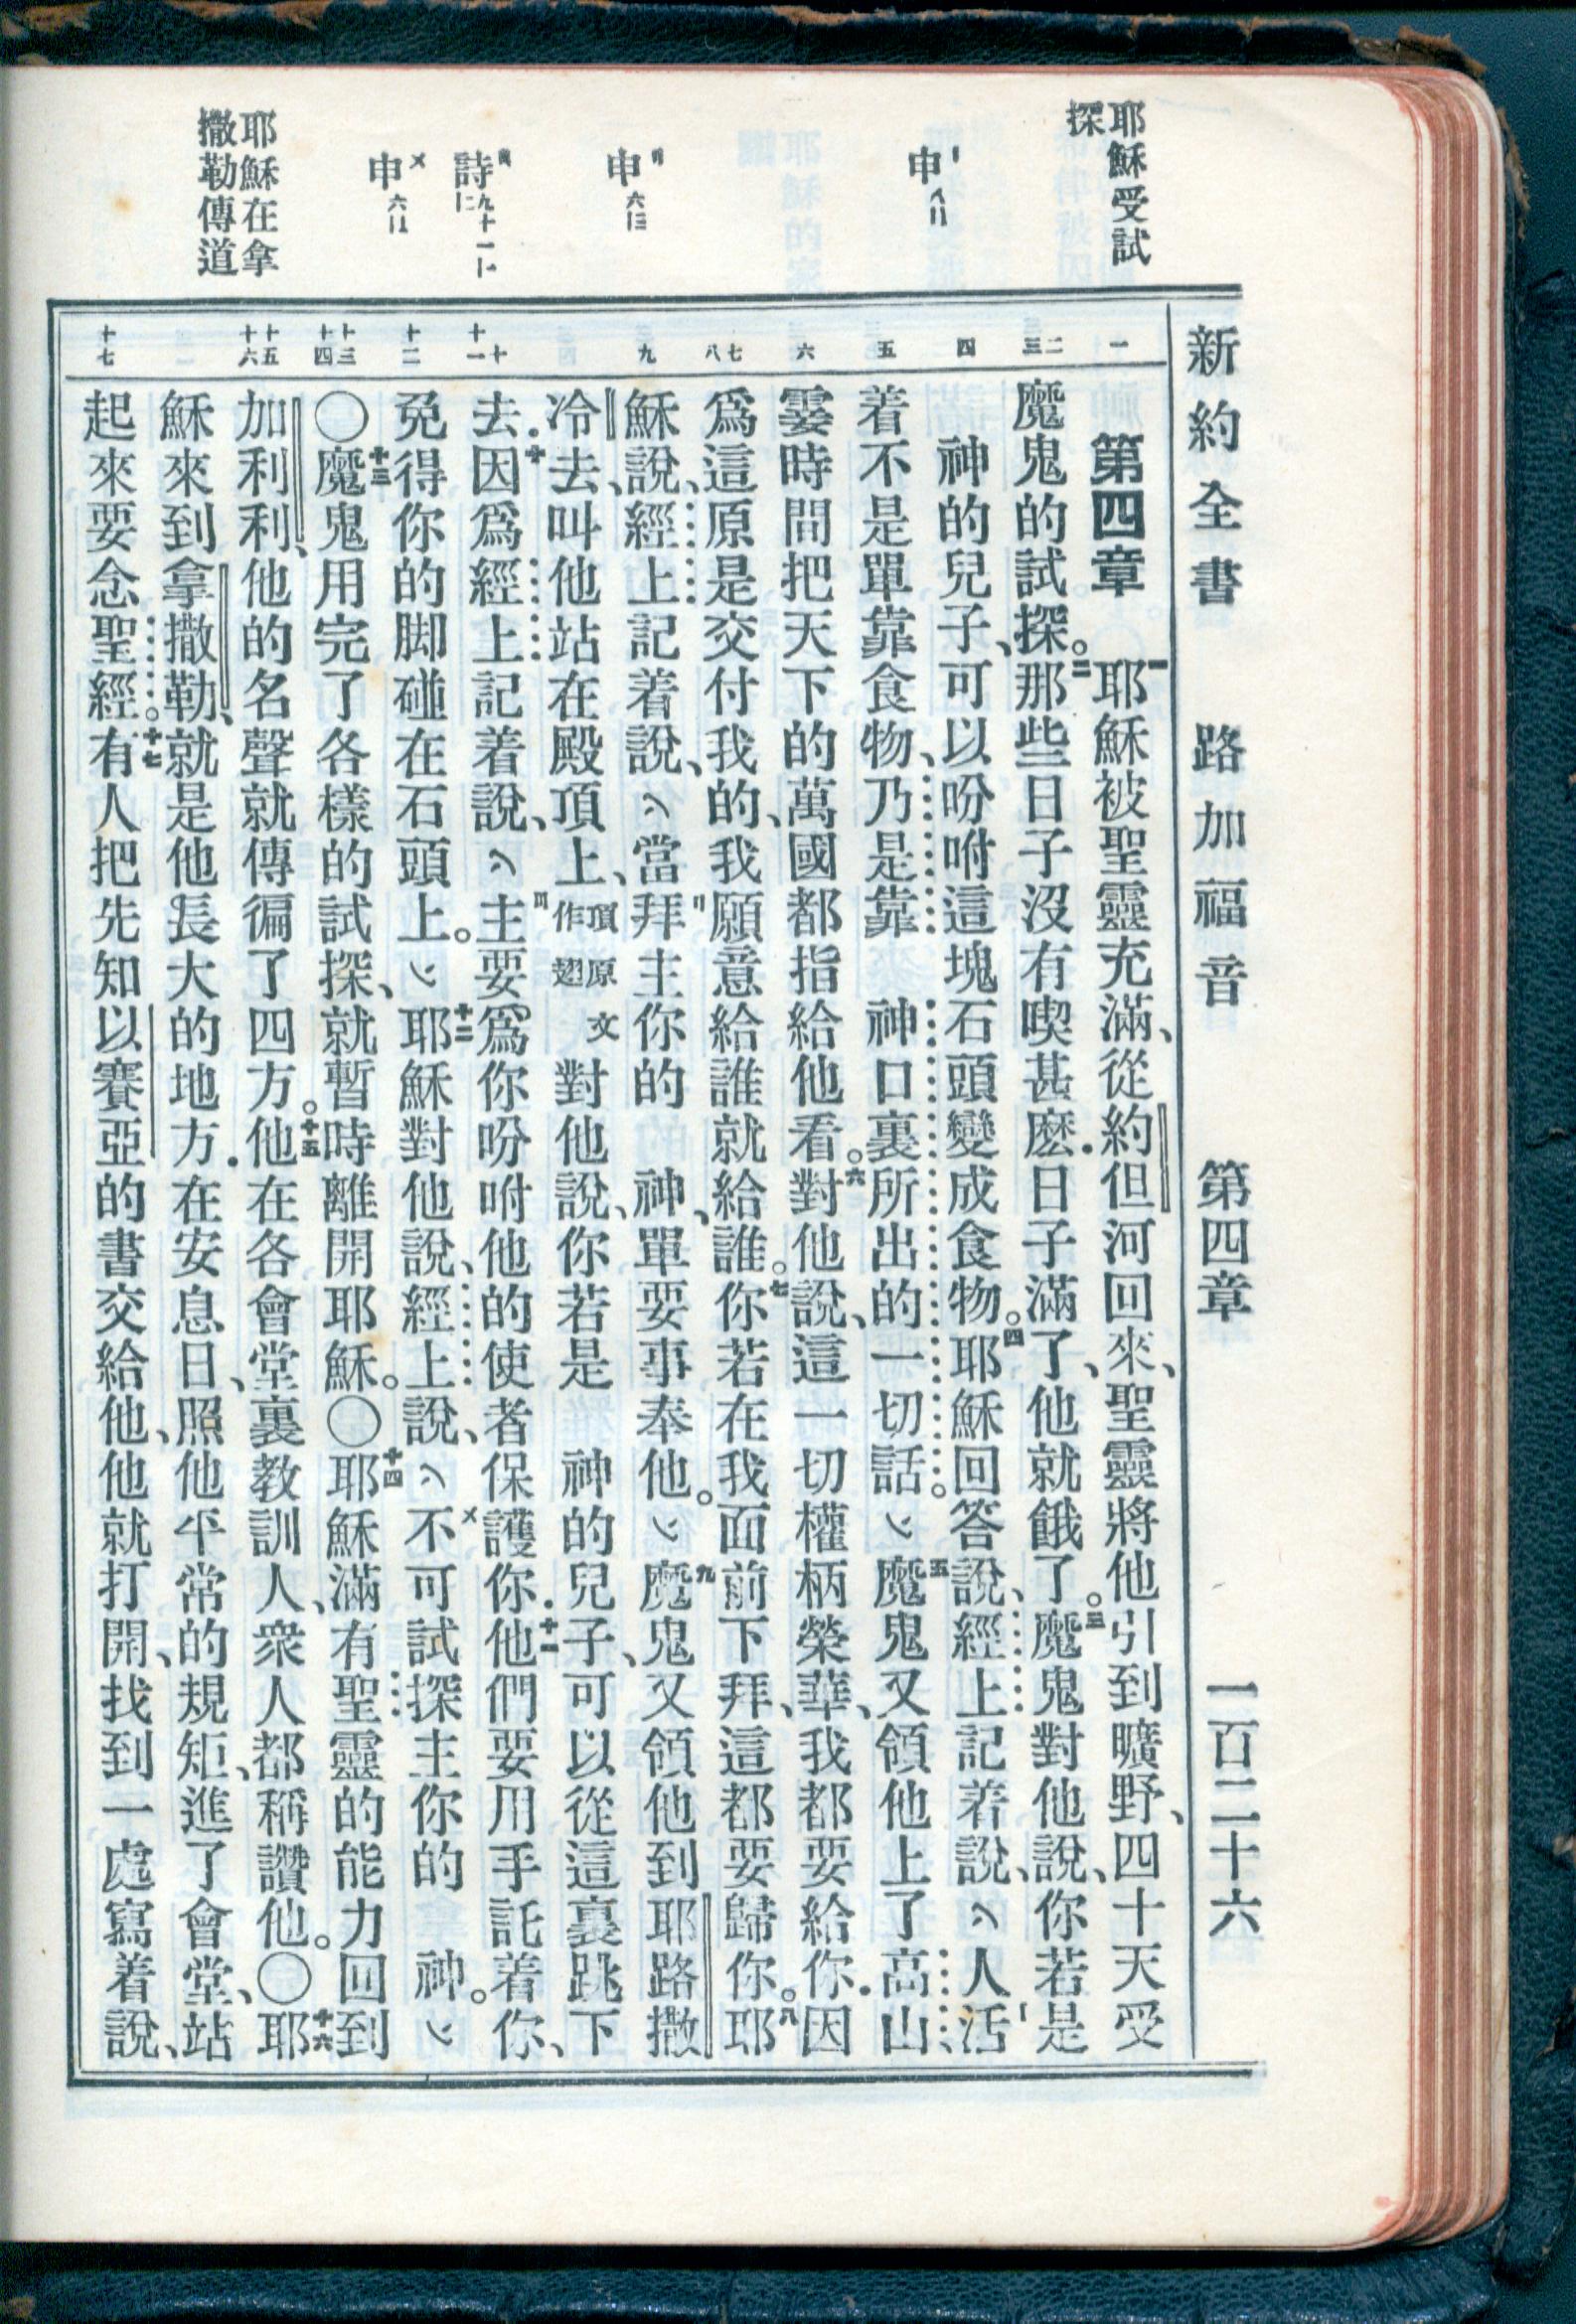 耶穌受試
探
申 八 三
申 六 十三
詩 九十一 十一 十二
申 六 十六
耶穌在拿
撒勒傳道
新約全書 路加福音 第四章 一百二十六
一
二
三
四
五
六
七
八
九
十
十一
十二
十三
十四
十五
十六
十七
第四章 一耶穌被聖靈充滿、從約但河回來、聖靈將他引到曠野、四十天受
魔鬼的試探。二那些日子沒有喫甚麽．日子滿了、他就餓了。三魔鬼對他說、你若是
神的兒子、可以吩咐這塊石頭變成食物。四耶穌回答說、經上記着說、〽人活
着不是單靠食物、乃是靠 神口裏所出的一切話。〵五魔鬼又領他上了高山、
霎時間把天下的萬國都指給他看。六對他說、這一切權柄榮華、我都要給你．因
爲這原是交付我的、我願意給誰就給誰。七你若在我面前下拜、這都要歸你。八耶
穌說、經上記着說、〽當拜主你的 神、單要事奉他。〵九魔鬼又領他到耶路撒
冷去、叫他站在殿頂上、頂原文作翅 對他說、你若是 神的兒子、可以從這裏跳下
去．十因爲經上記着說、〽主要爲你吩咐他的使者保護你．十一他們要用手託着你、
免得你的脚碰在石頭上。〵十二耶穌對他說、經上說、〽不可試探主你的 神。〵
〇十三魔鬼用完了各樣的試探、就暫時離開耶穌。〇十四耶穌滿有聖靈的能力回到
加利利、他的名聲就傳徧了四方。十五他在各會堂裏教訓人、衆人都稱讚他。〇十六耶
穌來到拿撒勒、就是他長大的地方．在安息日、照他平常的規矩、進了會堂、站
起來要念聖經。十七有人把先知以賽亞的書交給他、他就打開、找到一處寫着說、